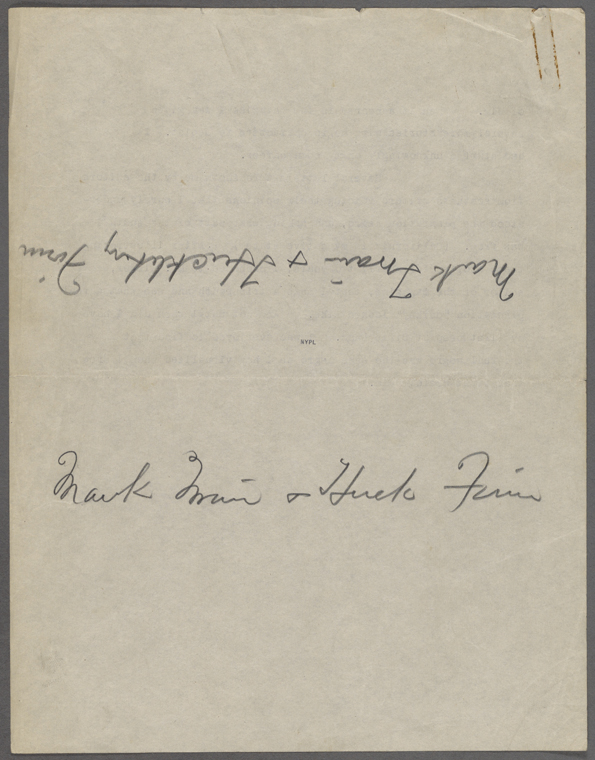 Mark Twain & Huckleby Finn
NYPL
Mark Twain & Huck Finn